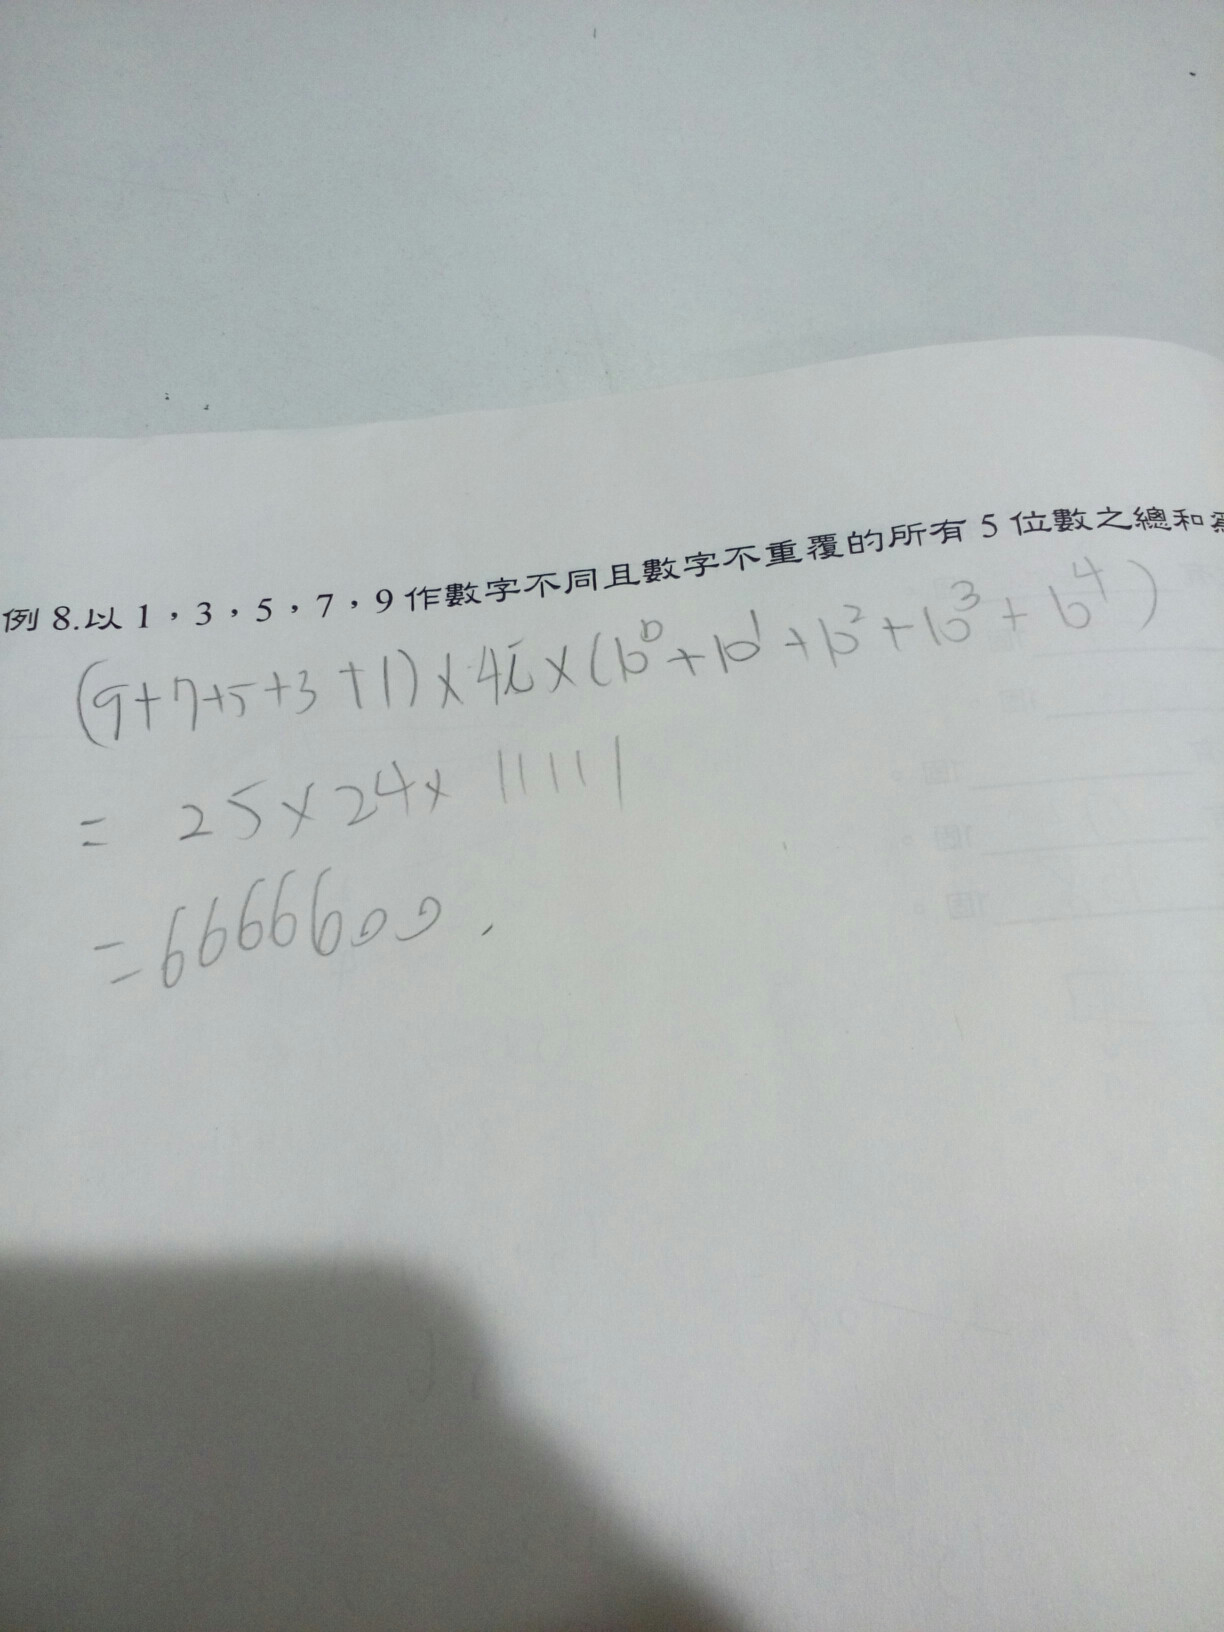 例 8.以 1，3，5，7，9 作數字不同且數字不重覆的所有 5 位數之總和
(9+7+5+3+1)×4!×(10⁰+10¹+10²+10³+10⁴)
= 25×24×11111
=6666600